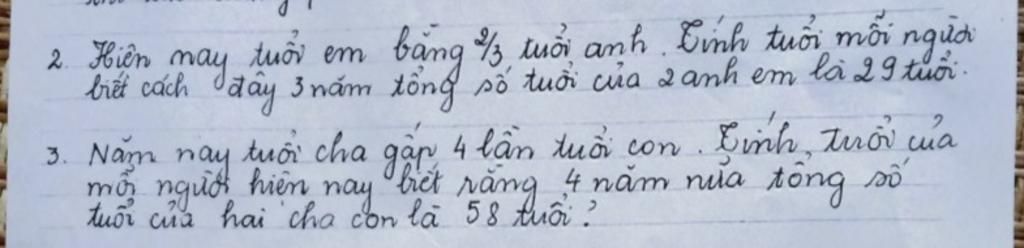 2. Hiện nay tuổi em bằng 2/3 tuổi anh. Tính tuổi mỗi người
biết cách đây 3 năm tổng số tuổi của 2 anh em là 29 tuổi.
3. Năm nay tuổi cha gấp 4 lần tuổi con. Tính tuổi của
mỗi người hiện nay biết rằng 4 năm nữa tổng số
tuổi của hai cha con là 58 tuổi?